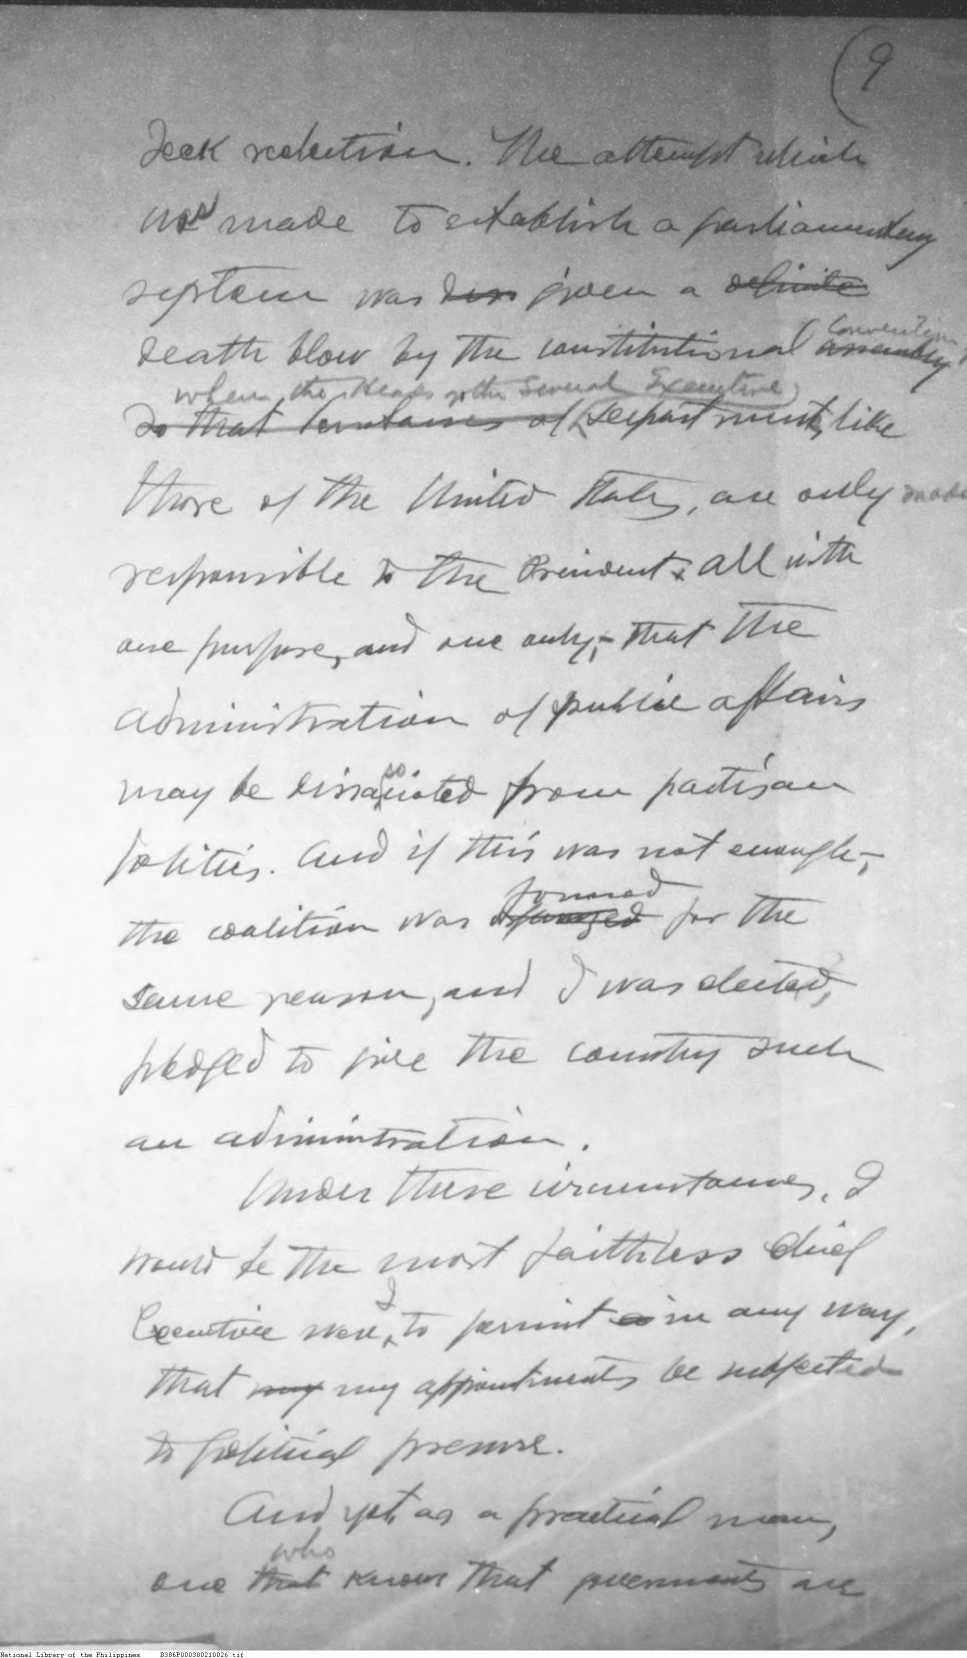 9
seek reelection. The attempt which
was made to establish a parliamentary
system was given a definite
death blow by the constitutional assembly
Convention
when the Heads of the Several Executive
So that of Departments, like
those of the United States, are only made
responsible to the President & all with
one purpose, and one only, - that the
administration of public affairs
may be dissasociated from partisan
politics. And if this was not enough, -
formed
the coalition was for the
same reason, and I was elected,
pledged to give the country such
an administration.
Under these circumstances, I
would be the most faithless chief
I
Executive were, to permit in any way,
that my my appointments be subjected
to political pressure.
And yet, as a practical man,
who
one that knows that governments are
National Library of the Philippines B386P000300210026.tif